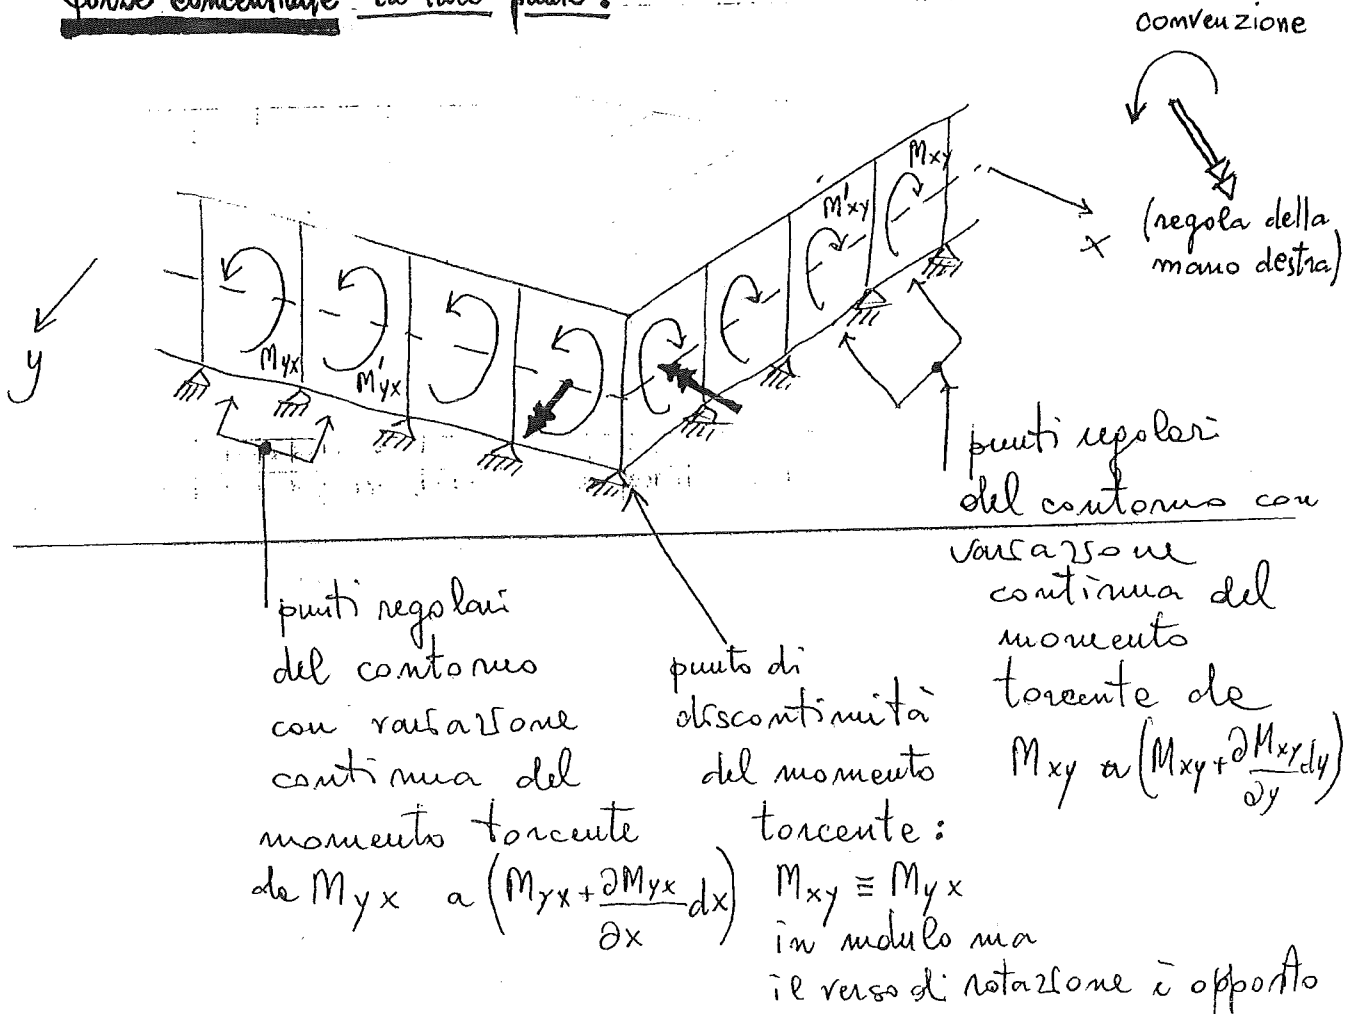 forze concentrate in tale punto:
convenzione
(regola della
mano destra)
x
y
Mxy
M'xy
Myx
M'yx
punti regolari
del contorno con
variazione
continua del
momento
torcente da
Mxy a (Mxy + ∂Mxy/∂y dy)
punti regolari
del contorno
con variazione
continua del
momento torcente
da Myx a (Myx + ∂Myx/∂x dx)
punto di
discontinuità
del momento
torcente:
Mxy ≡ Myx
in modulo ma
il verso di rotazione è opposto